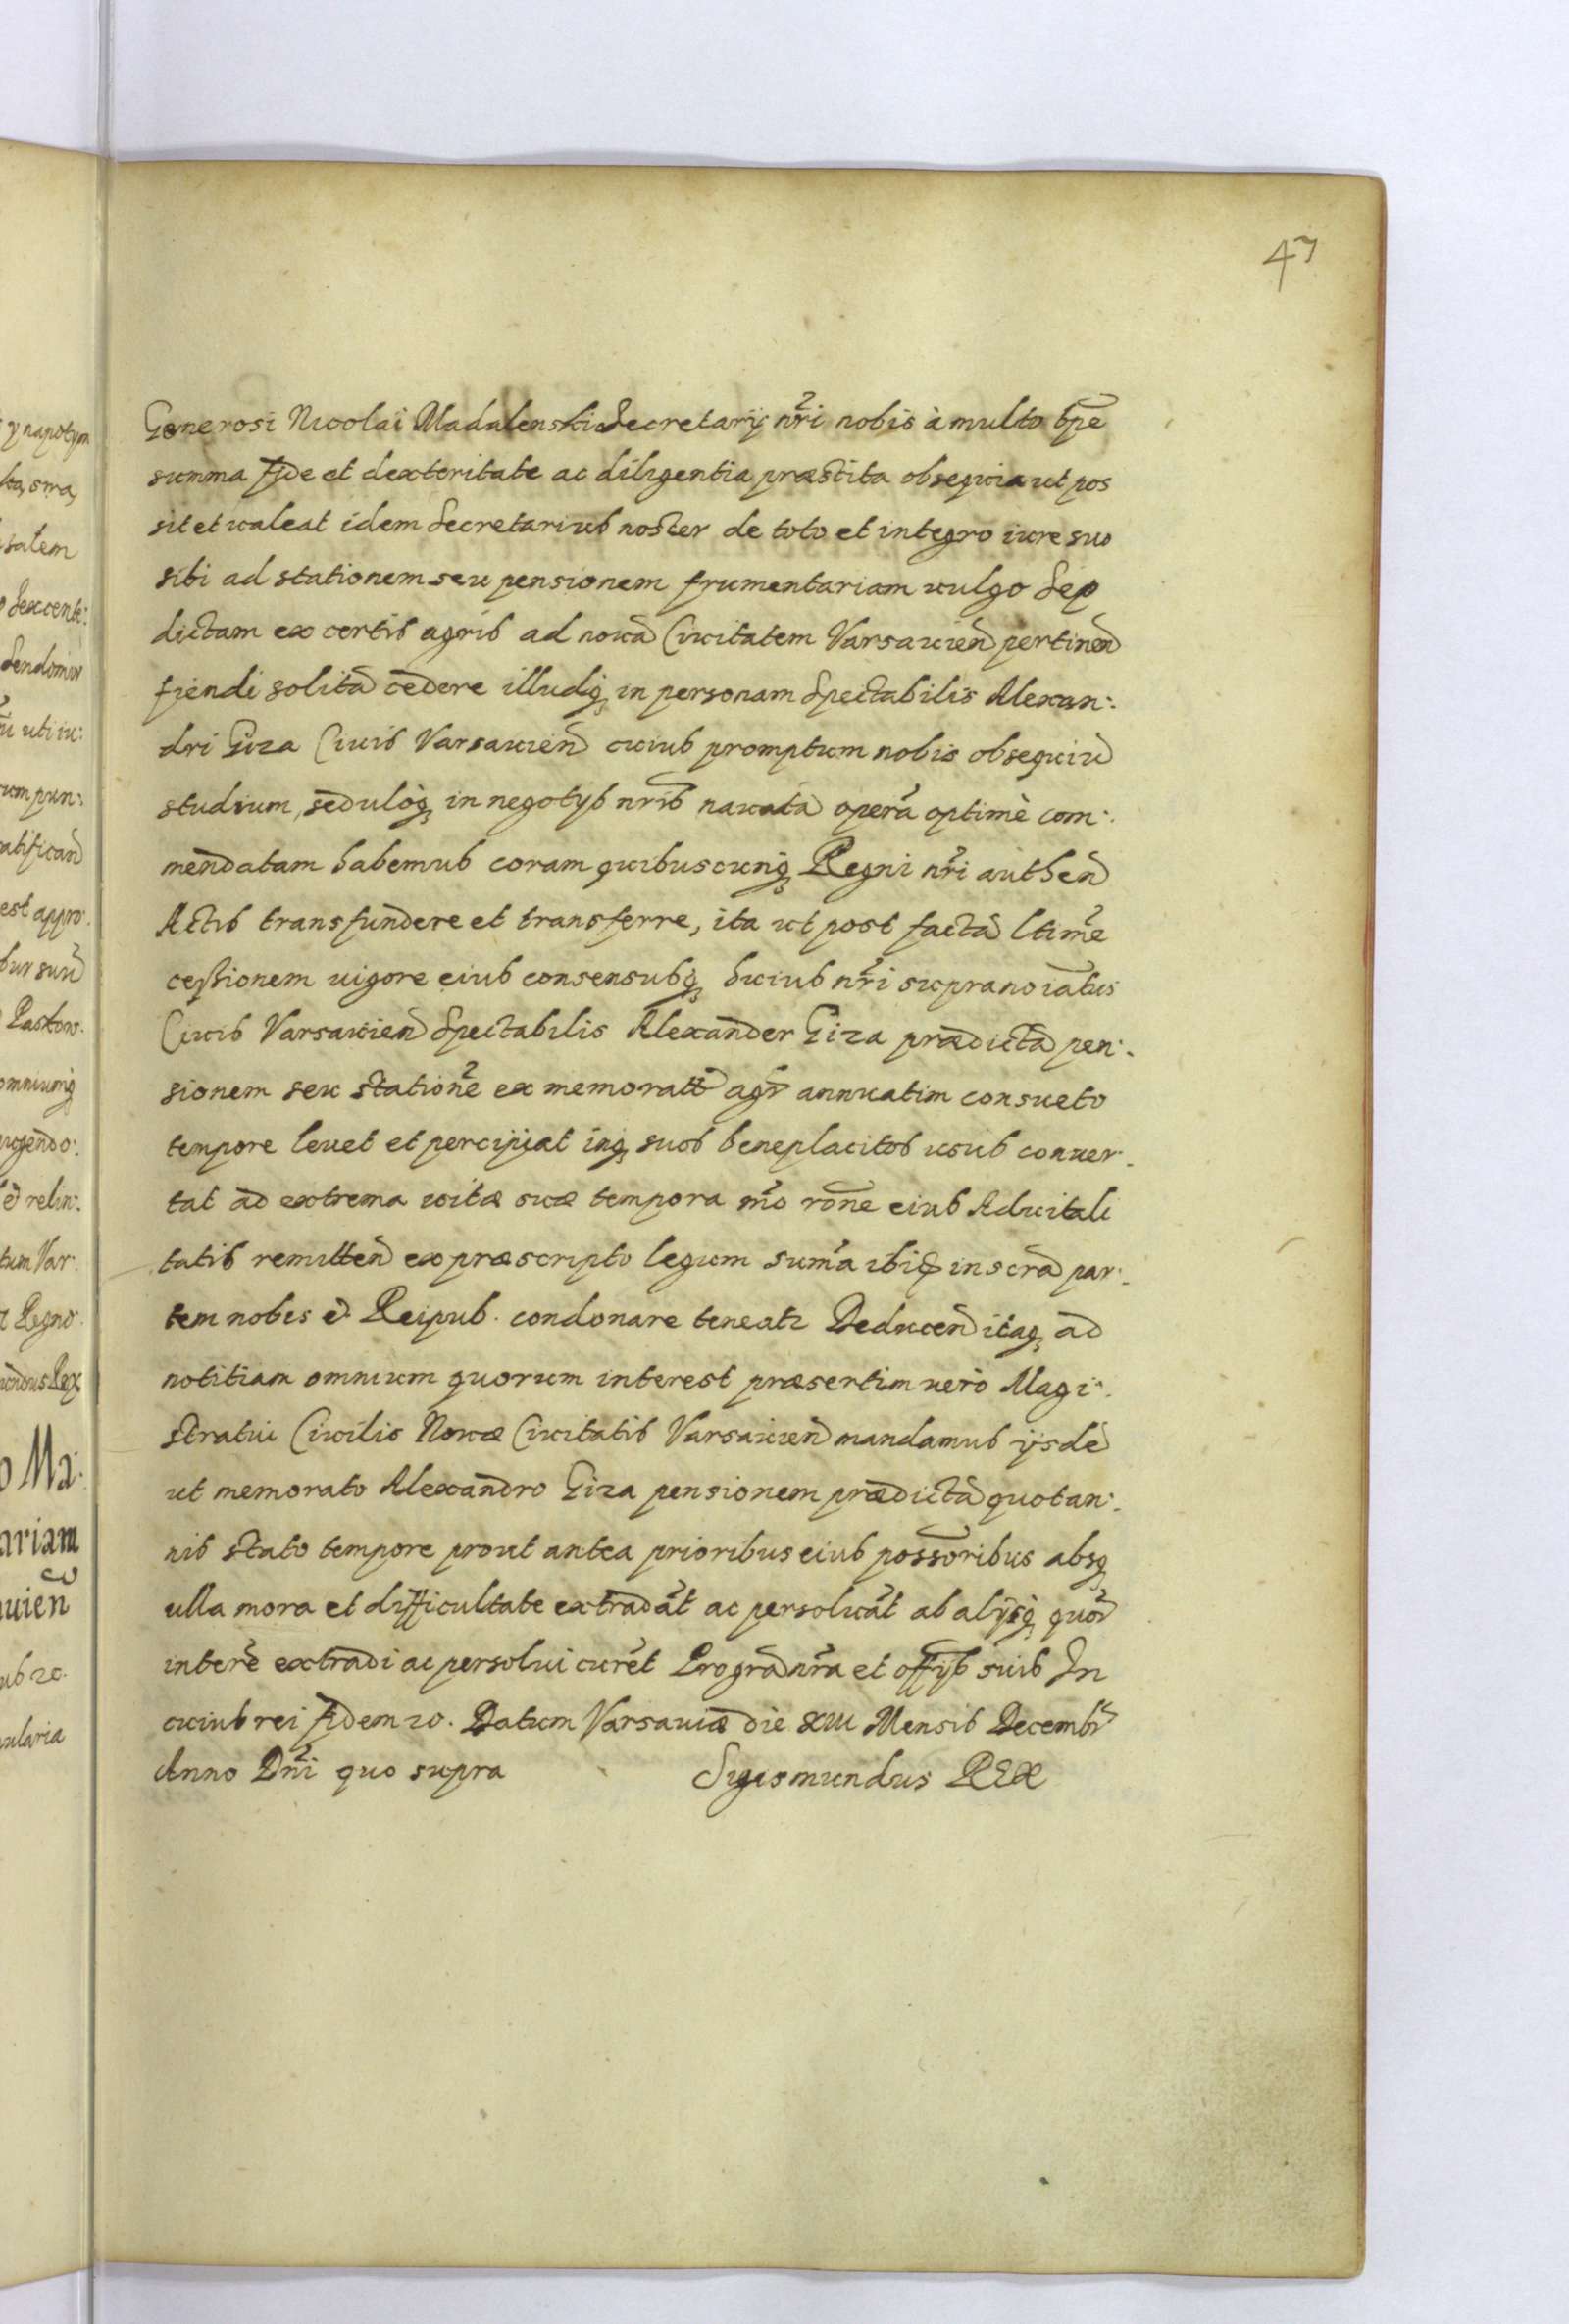 47
Generosi Nicolai Madalenski Secretarij nr̃i nobis à multo tp̃e
summa fide et dexteritate ac diligentia præstita obsequia ut pos
sit et valeat idem Secretarius noster de toto et integro iure suo
sibi ad stationem seu pensionem frumentariam vulgo Sep
dictam ex certis agris ad novã Civitatem Varsavien̄ pertinen̄
fiendi solitã cedere illudq; in personam Spectabilis Alexan:
dri Giza Civis Varsavien̄ cuius promptum nobis obsequiũ
studium, sedulòq; in negotijs nr̃is navatã operã optimè com:
mendatam habemus coram quibuscunq; Regni nr̃i authen̄
Actis transfundere et transferre, ita ut post factã ltimẽ
cessionem vigore eius consensusq; huius nr̃i supranoiatus
Civis Varsavien̄ Spectabilis Alexander Giza prædictã pen:
sionem seu stationẽ ex memorat̃ agr̃ annuatim consueto
tempore levet et percipiat inq; suos beneplacitos usus conver:
tat ad extrema vitæ suæ tempora mõ rõne eius Advitali
tatis remitten̄ ex præscripto legum sumã ibiđ inscrã par:
tem nobis et Reipub. condonare teneatr Deducen̄ itaq; ad
notitiam omnium quorum interest præsertim verò Magi:
stratui Civilis Novæ Civitatis Varsavien̄ mandamus ijsdẽ
ut memorato Alexandro Giza pensionem prædictã quotan:
nis stato tempore prout antea prioribus eius possoribus absq;
ulla mora et difficultate extradãt ac persolvãt ab alijsq; quõr
interẽ extradi ac persolvi curẽt Pro grã nr̃a et offijs suis In
cuius rei fidem ro. Datum Varsaviæ die XIII Mensis Decembr̃
Anno Dn̄i quo supra Sigismundus REX